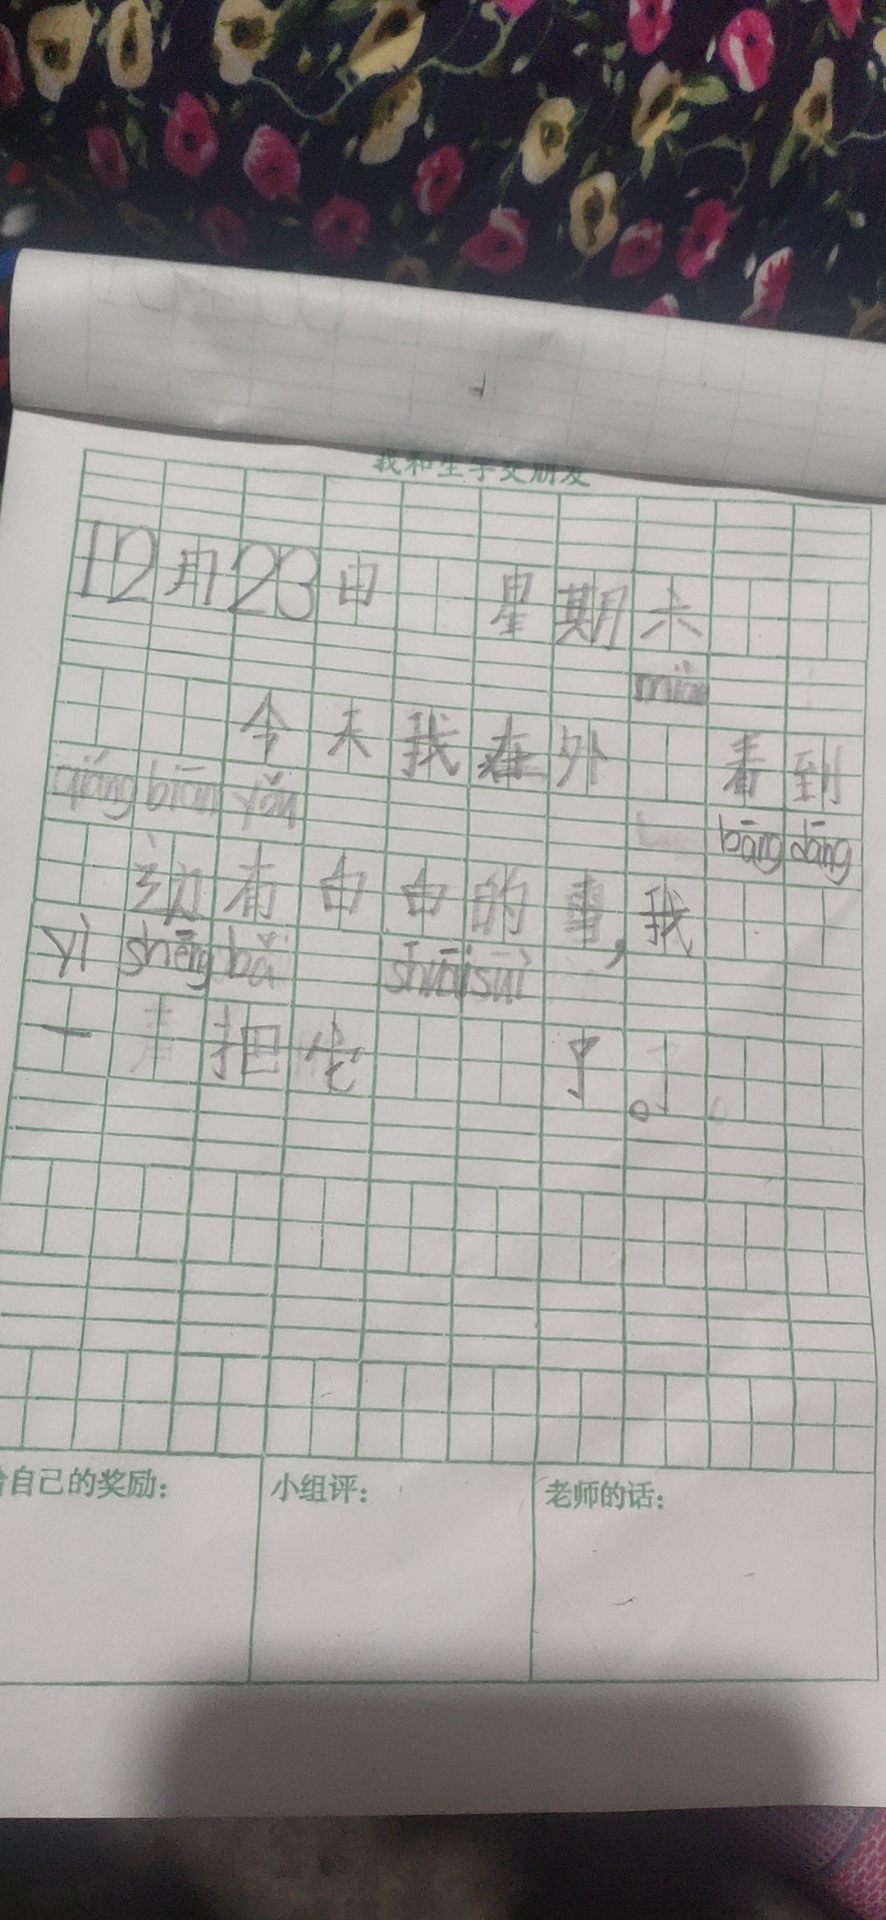 我和生字交朋友
12月23日 星期六
miàn
今天我在外 看到
qiáng biān yǒu
bāng dāng
边有白白的事,我
yì shēng bǎ
shuāi suì
一声把它 了。
给自己的奖励:
小组评:
老师的话: